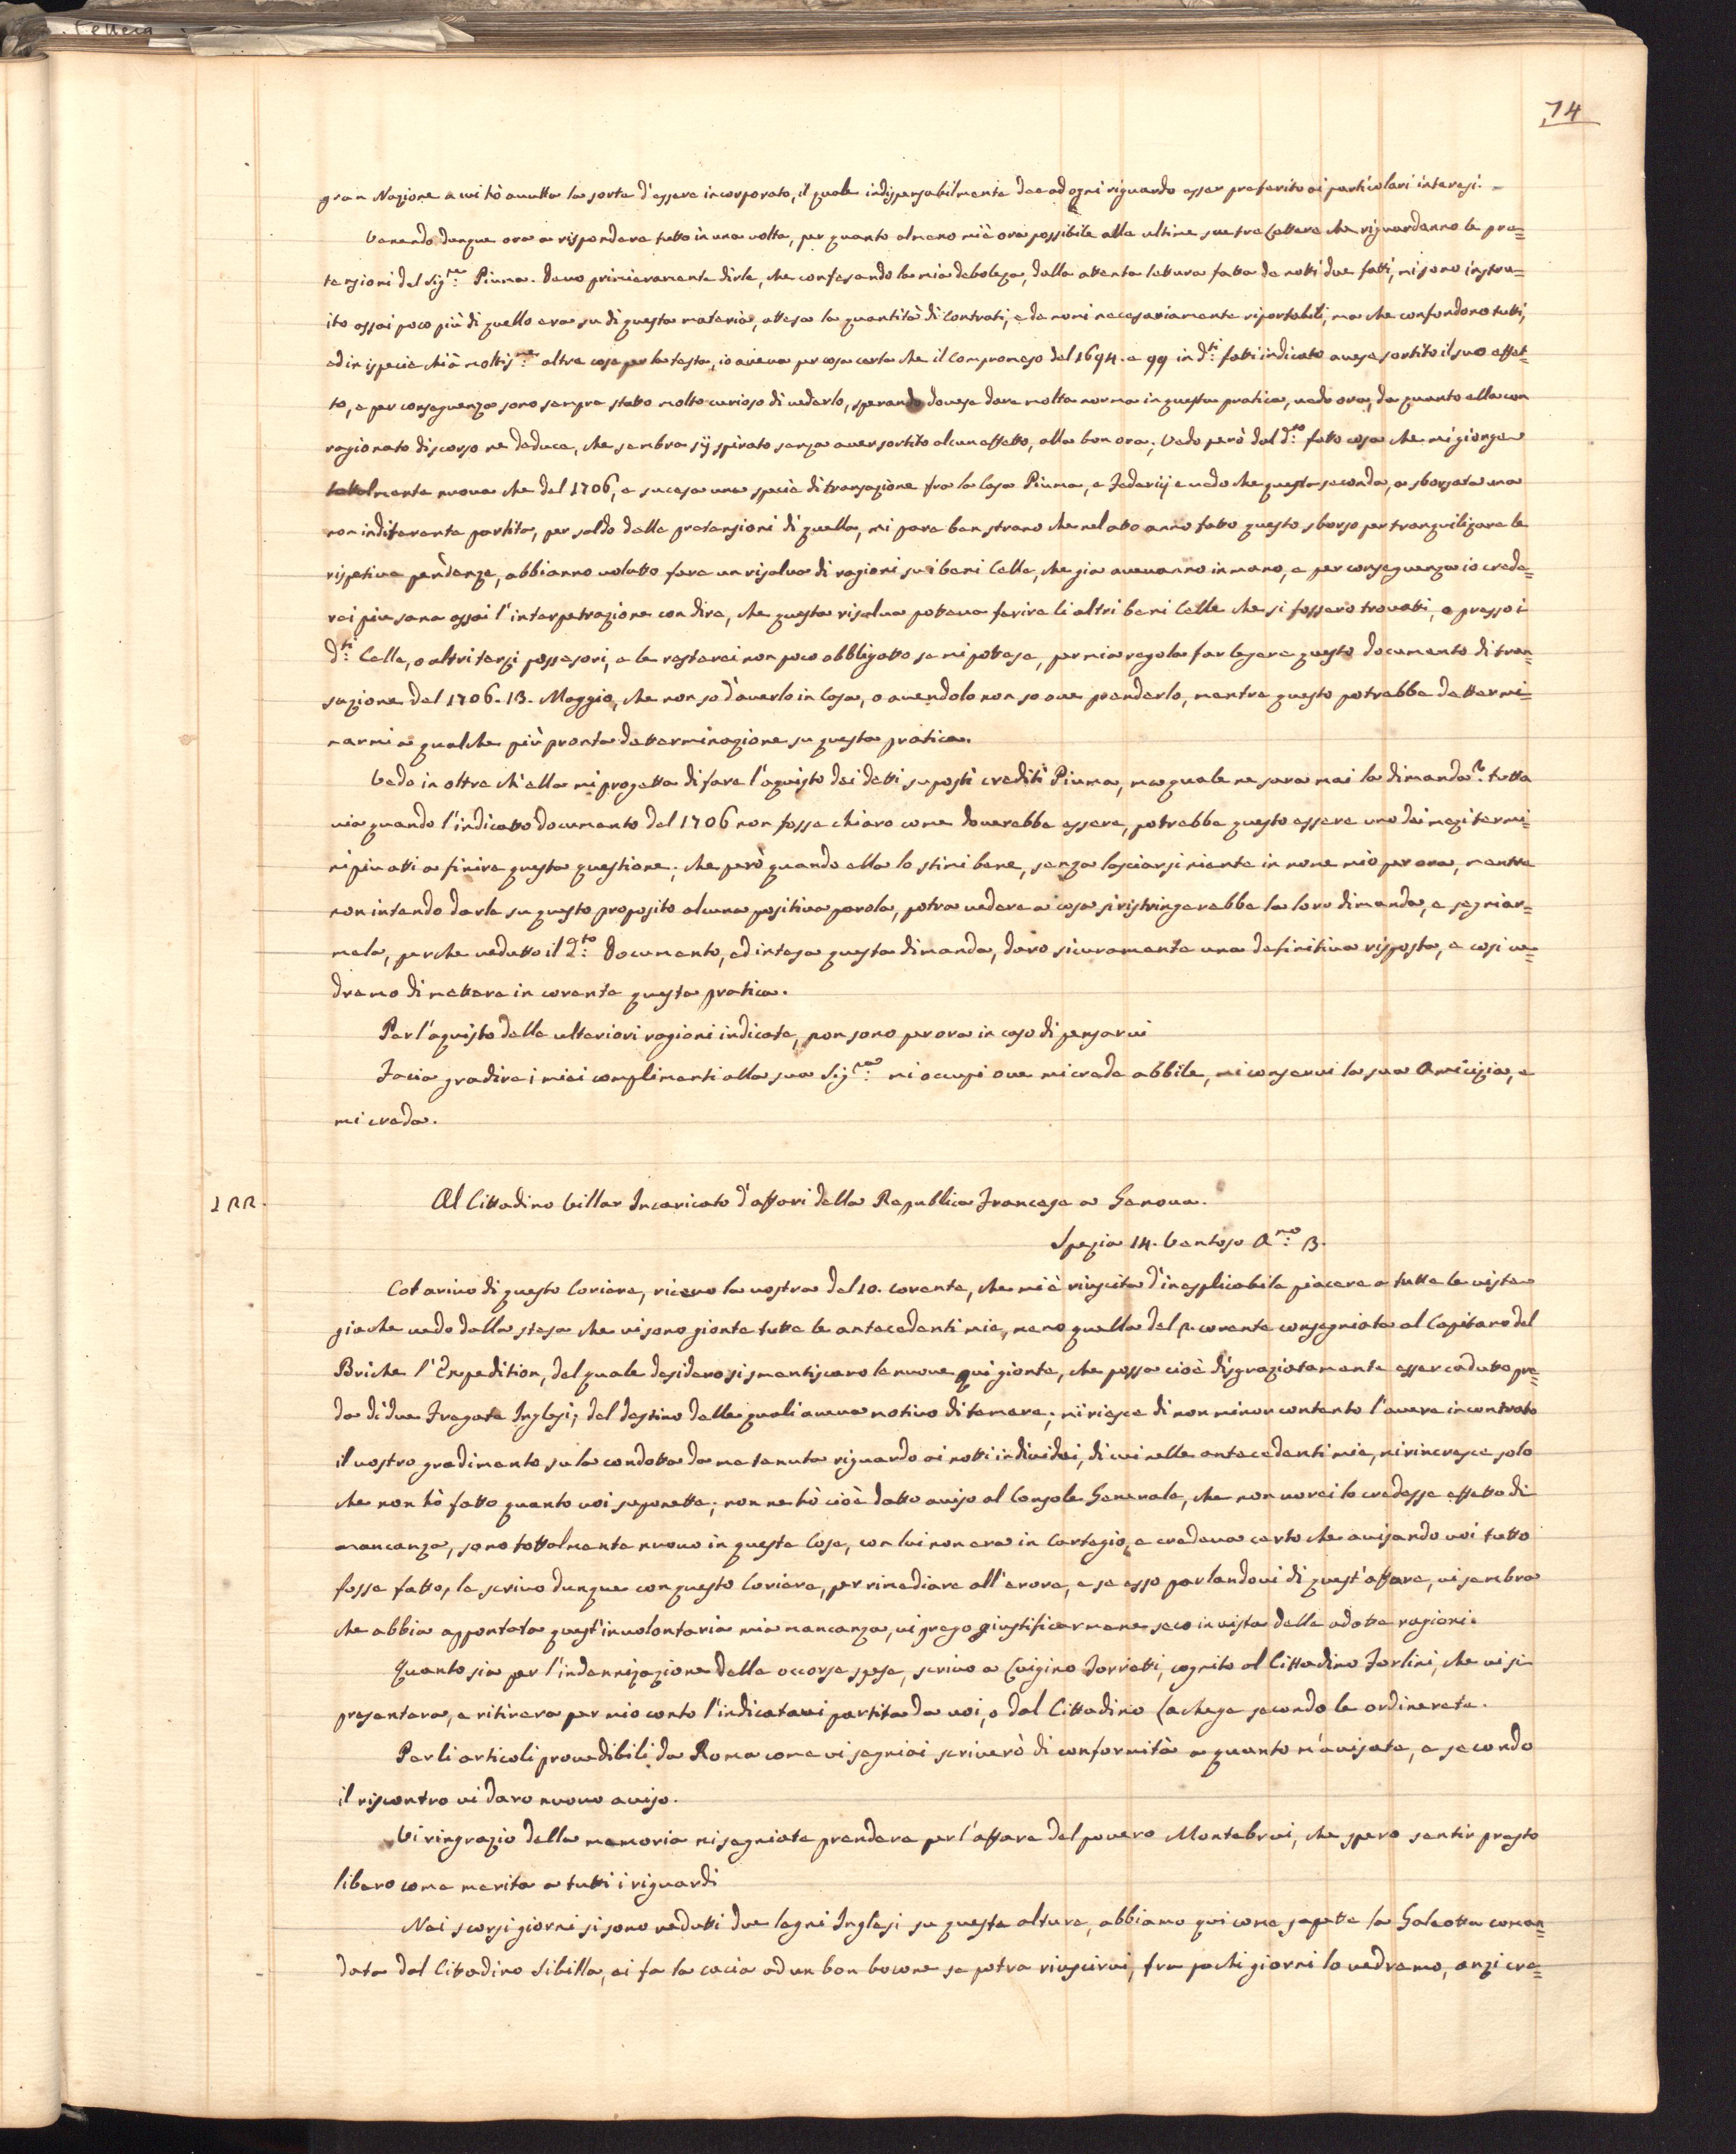 Lettera
74
gran Nazione a cui hò auutta la sorte d'essere incorporato, il quale indispensabilmente dee ad ogni riguardo esser preferito ai particolari interessi. -
Venendo dunque ora a rispondere tutto in una volta, per quanto almeno mi è ora possibile alle ultime sue tre Lettere che riguardanno le pre=
tenzioni del Sig.re Piuma. Devo primieramente dirle, che confesando la mia debolezza, dalla attenta lettura fatta de notti due fatti, mi sono instru=
ito assai poco più di quello era su di questa materia, attesa la quantità di Contrati, e de nomi necesariamente riportabili, ma che confondono tutti,
ed in ispecie chi à moltis.me altre cose per la testa, io aveva per cosa certa che il Compromeso del 1694. e 99 in d.ti fatti indicato avese sortito il suo effet=
to, e per conseguenza sono sempre stato molto curioso di vederlo, sperando dovese dare molta norma in questa pratica, vedo ora, da quanto ella con
ragionato discorso ne deduce, che sembra sij spirato senza aver sortito alcun effetto, alla bon ora; Vedo però dal d.to fatto cosa che mi gionge
totalmente nuova che del 1706, e sucesa una specie di transazione fra la Casa Piuma, e Federicj e vedo che questa seconda, a sborsata una
non indiferente partita, per saldo delle pretensioni di quella, mi pare ben strano che nel atto anno fatto questo sborso per tranquilizare le
rispetive pendenze, abbianno volutto fare un risalva di ragioni su i beni Celle, che gia avevanno in mano, e per conseguenza io crede=
rei piu sana assai l'interpetrazione con dire, che questa risalva potteva ferire li altri beni Celle che si fossero trovatti, a presso i
d.ti Celle, o altri terzi possesori, e le restarei non poco obbligatto se mi pottese, per mia regola far legere questo documento di tran=
sazione del 1706. 13. Maggio, che non so d'averlo in Casa, o avendolo non so ove prenderlo, mentre questo potrebbe dettermi=
narmi a qualche più pronta determinazione su questa pratica.
Vedo in oltre ch'ella mi progetta di fare l'aquisto dei detti suposti crediti Piuma, ma quale ne sara mai la dimanda? tutta
via quando l'indicatto documento del 1706 non fosse chiaro come doverebbe essere, potrebbe questo essere uno dei mezi termi=
ni piu atti a finire questa questione; che però quando ella lo stimi bene, senza lasciarsi niente in nome mio per ora, mentre
non intendo darle su questo proposito alcuna positiva parola, potra vedere a cosa si ristringerebbe la loro dimanda, e segniar=
mela, perche vedutto il d.to Documento, ed intesa questa dimanda, daro sicuramente una definitiva risposta, e cosi ve=
dremo di mettere in corente questa pratica.
Per l'aquisto delle ulteriori ragioni indicate, non sono per ora in caso di pensarvi
Facia gradire i miei complimenti alla sua Sig.ra mi occupi ove mi crede abbile, mi conservi la sua Amicizia, e
mi creda.
LRR.
Al Cittadino Villar Incaricato d'affari della Republica Francese a Genova.
Spezia 14. Ventoso A.no 3.
Col arivo di questo Coriere, ricevo la vostra del 10. corente, che mi è riuscita d'inesplicabile piacere a tutte le viste
gia che vedo dalla stesa che vi sono gionte tutte le antecedenti mie, meno quella del p. corente consegniata al Capitano del
Briche l'Expedition, del quale desidero si smentiscano le nuove qui gionte, che possa cioè disgraziatamente esser cadutto pre=
da di due Fregate Inglesi; del destino delle quali aveva motivo di temere; mi riesce di non minor contento l'avere incontrato
il vostro gradimento su la condotta da me tenuta riguardo ai notti individui, di cui nelle antecedenti mie, mi rincresce solo
che non hò fatto quanto voi suponette; non ne hò cioè datto aviso al Console Generale, che non vorei lo credesse effetto di
mancanza, sono tottalmente nuovo in queste Cose, con lui non era in Cartegio, e credeva certo che avisando voi tutto
fosse fatto, le scrivo dunque con questo Coriere, per rimediare all'erore, e se esso parlandovi di quest'affare, vi sembra
che abbia apportata quest'involontaria mia mancanza, vi prego giustificarmene seco in vista delle adotte ragioni.
Quanto sia per l'indennizazione delle occorse spese, scrivo a Luigino Torriatti, cognito al Cittadino Farlini, che vi si
presentara, e ritirera per mio conto l'indicatavi partita da voi, o dal Cittadino Lachege secondo le ordinerete.
Per li articoli provedibili da Roma come vi segniai scriverò di conformità a quanto m'avisate, e secondo
il riscontro vi daro nuovo aviso.
Vi ringrazio della memoria mi segniate prendere per l'affare del povero Montebrui, che spero sentir presto
libero come merita a tutti i riguardi
Nei scorsi giorni si sono vedutti due legni Inglesi su queste alture, abbiamo qui come sapette la Galeotta coman=
data dal Cittadino Sibilla, ei fa la cacia ad un bon bocone se potra riuscirvi, fra pochi giorni lo vedremo, anzi cre=